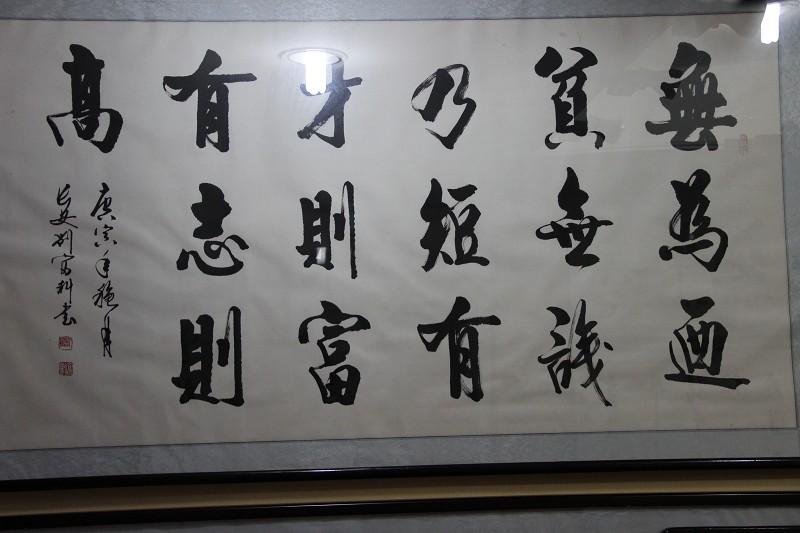 無為迺
貧無識
乃短有
才則富
有志則
高
庚寅年月
长安刘富科书